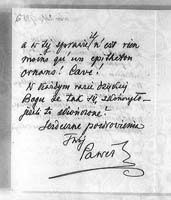 a w tej sprawie, n'est rien
moins qu'un epitheton
ornans! Cave!
W każdym razie dziękuję
Bogu że tak się skończyło
jeśli to skończone!
Serdeczne pozdrowienia
Twój
Paweł